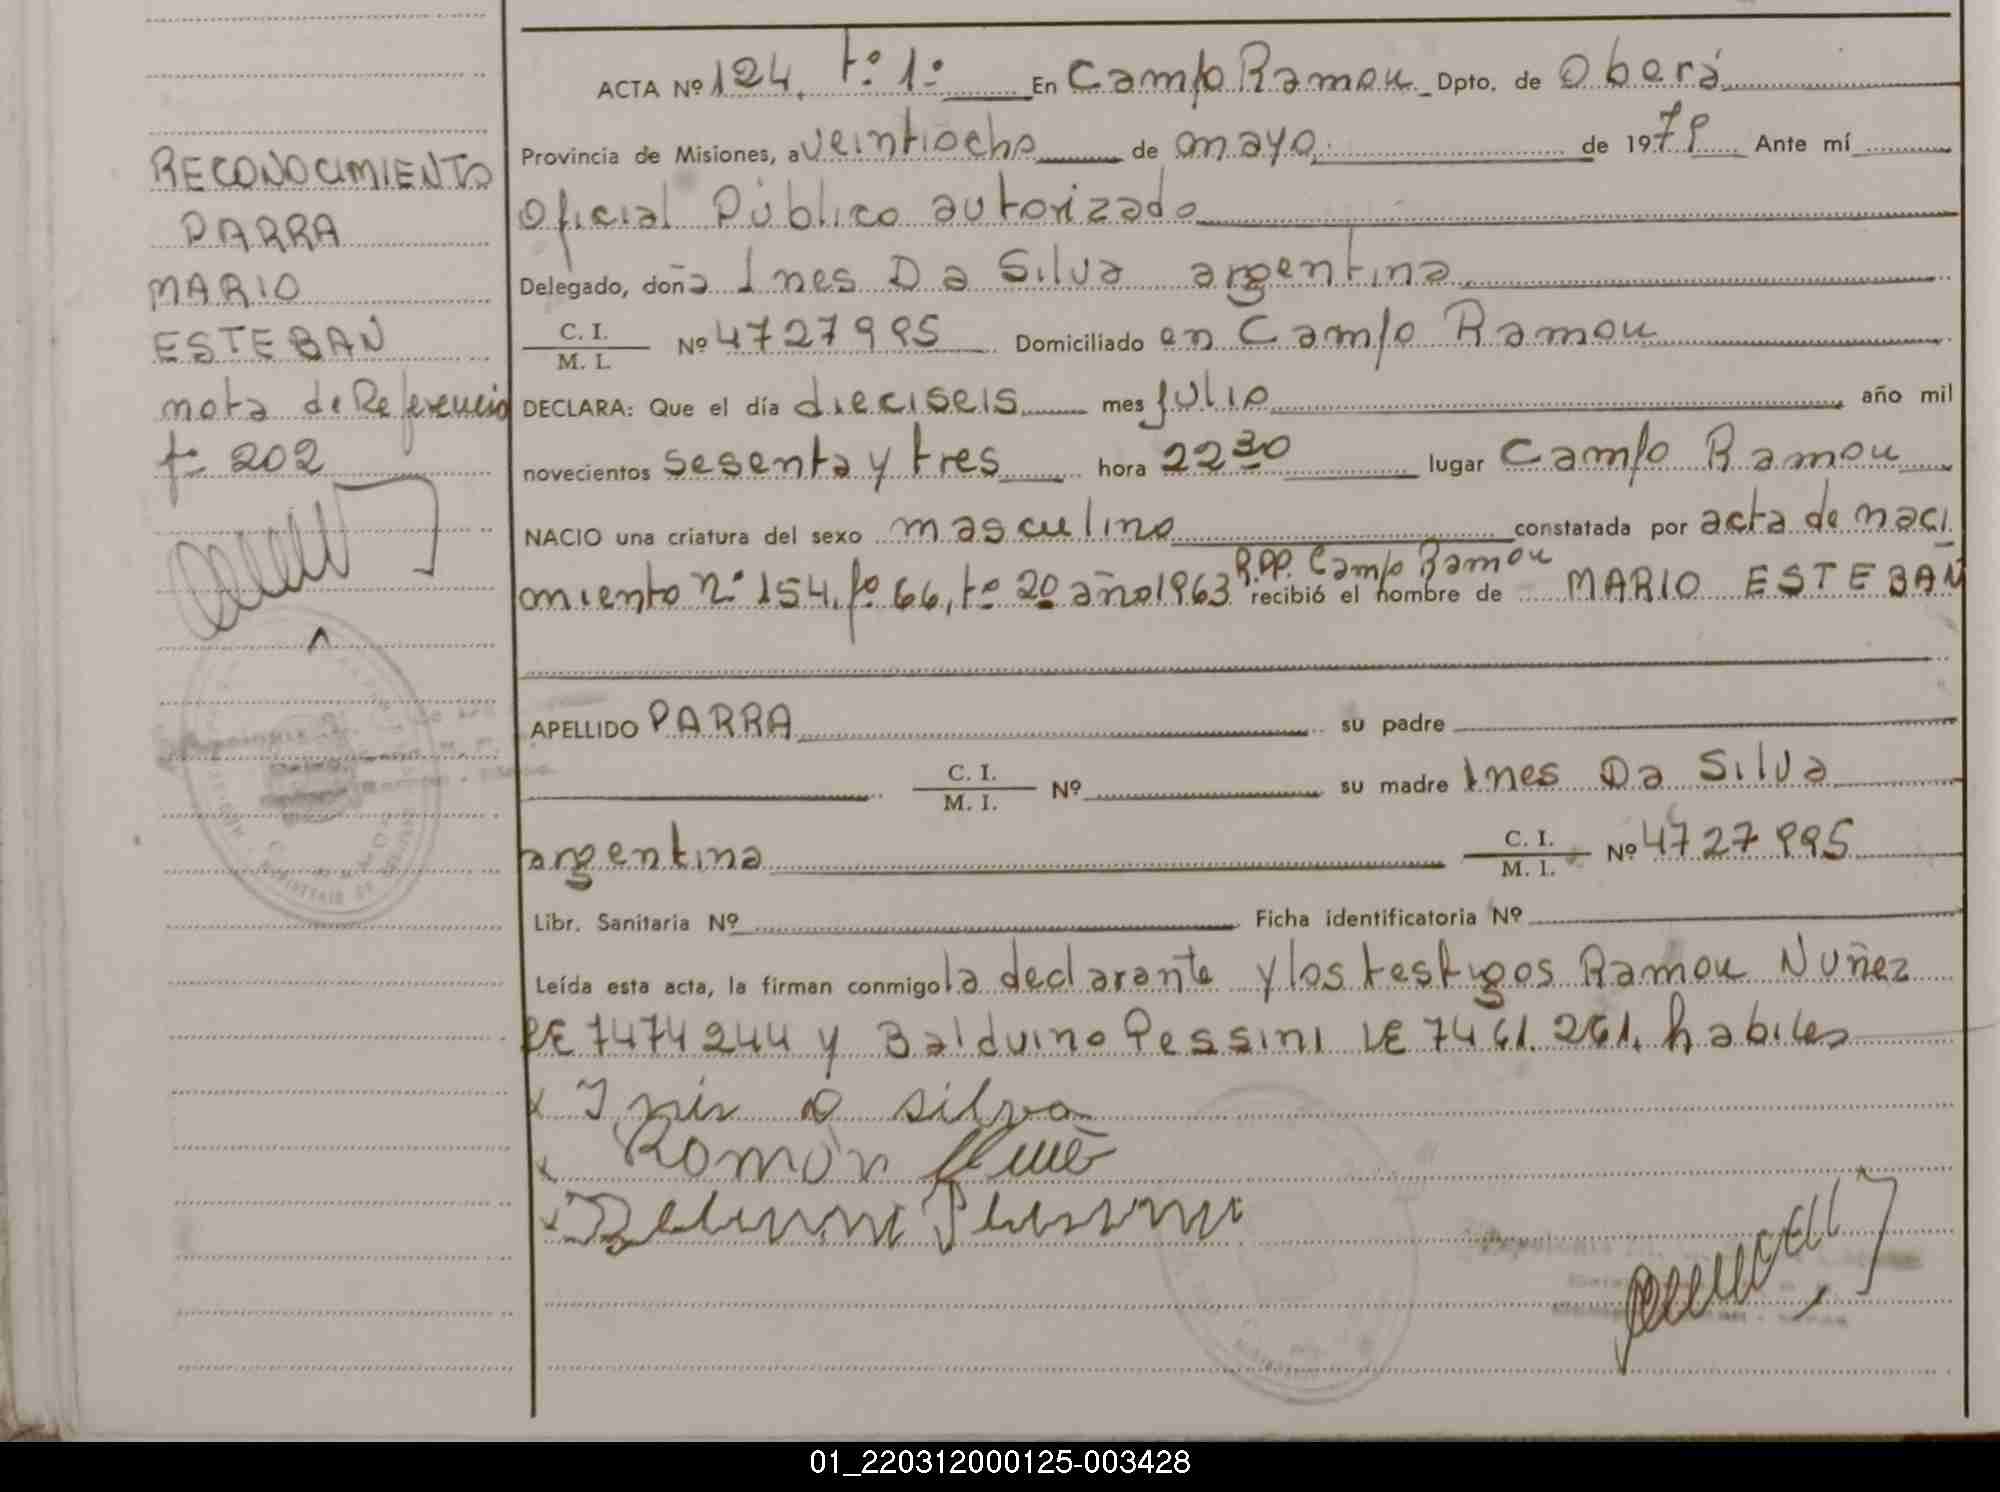 ACTA Nº 124. tº 1º En Campo Ramon Dpto. de Oberá
Provincia de Misiones, a veintiocho de mayo de 1979 Ante mí
Oficial Público autorizado
Delegado, doña Ines Da Silva argentina
C. I.
M. I.
Nº 4727995 Domiciliado en Campo Ramon
DECLARA: Que el día dieciseis mes Julio año mil
novecientos sesenta y tres hora 22 30 lugar Campo Ramon
NACIO una criatura del sexo masculino constatada por acta de naci
R.PP. Campo Ramon
miento nº 154, fº 66, tº 20 año 1963 recibió el nombre de MARIO ESTEBAN
APELLIDO PARRA su padre
C. I.
M. I.
Nº su madre Ines Da Silva
argentina C. I.
M. I.
Nº 4727995
Libr. Sanitaria Nº Ficha identificatoria Nº
Leída esta acta, la firman conmigo la declarante y los testigos Ramon Nuñez
LE 7474244 y Balduino Pessini LE 7461.261. habiles
x Inis D silva
x Ramón
x
RECONOCIMIENTO
PARRA
MARIO
ESTEBAN
nota de Referencia
fº 202
01_220312000125-003428